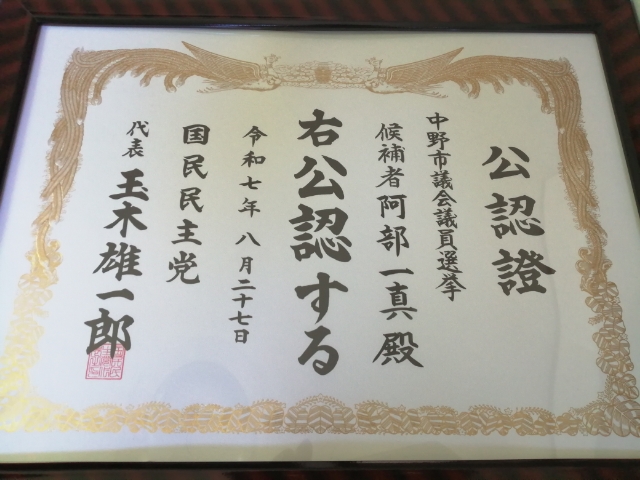 公認證
中野市議会議員選挙
候補者阿部一真殿
右公認する
令和七年八月二十七日
国民民主党
代表 玉木雄一郎